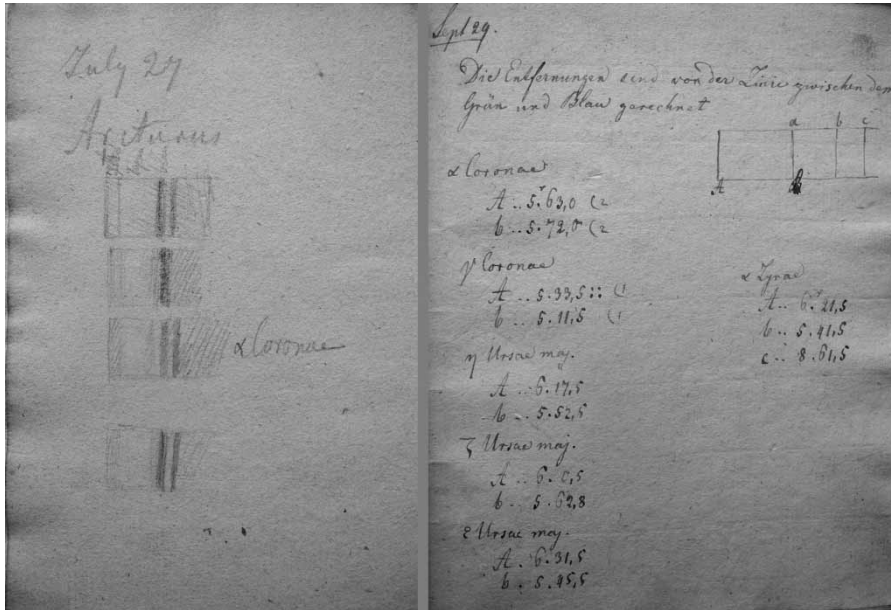 July 27
Arcturus
α Coronae
Sept 29.
Die Entfernungen sind von der Linie zwischen dem
Grün und Blau gerechnet
a b c
A B
α Coronae
A .. 5.63,0 (2
b .. 5.72,5 (2
γ Coronae
A .. 5.33,5 :: (1
b .. 5.11,5 (1
η Ursae maj.
A .. 6.17,5
b .. 5.52,5
ζ Ursae maj.
A .. 6.0,5
b . 5.62,8
ε Ursae maj.
A . 6.31,5
b . 5.45,5
α Lyrae
A .. 6.21,5
b .. 5.41,5
c .. 8.61,5